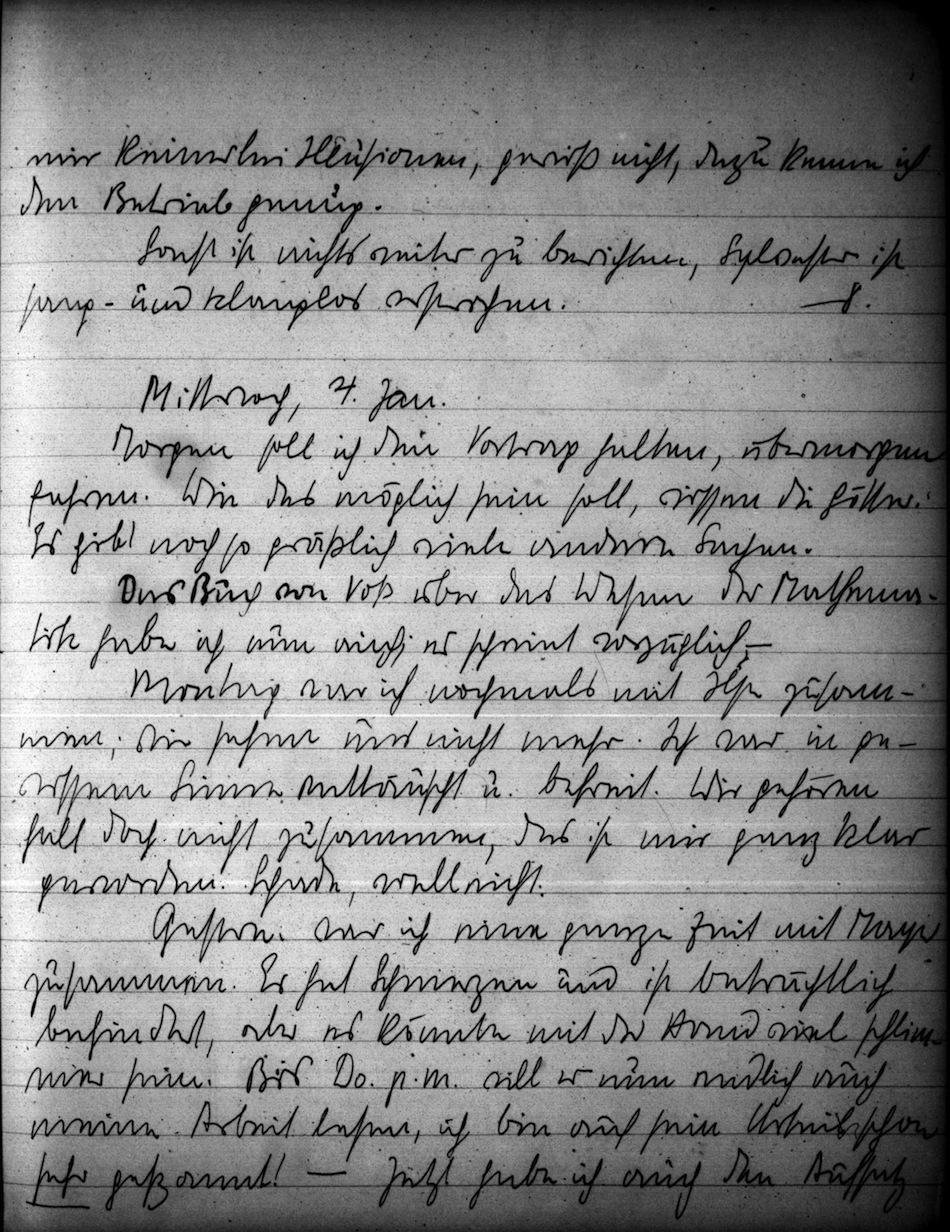 mir keinerlei Illusionen, gewiß nicht, dazu kenne ich
den Betrieb genug.
Sonst ist nichts weiter zu berichten, Sylvester ist
sang- und klanglos verstrichen.
Mittwoch, 4. Jan.
Morgen soll ich den Vortrag halten, übermorgen
fahren. Wie das möglich sein soll, wissen die Götter.
Es gibt noch so gräßlich viele andere Sachen.
Das Buch von Voß über das Wesen der Mathema-
tik habe ich nun auch; es scheint vorzüglich. —
Montag war ich nochmals mit Ilse zusam-
men; wir sehen uns nicht mehr. Ich war in ge-
wissem Sinne enttäuscht u. befreit. Wir gehören
halt doch nicht zusammen, das ist mir ganz klar
geworden. Schade, vielleicht.
Gestern war ich eine ganze Zeit mit
zusammen. Er hat Schmerzen und ist beträchtlich
behindert, aber es könnte mit der Hand viel schlim-
mer sein. Bis Do. p.m. will er nun endlich auch
meine Arbeit lesen, ich bin auf sein Urteil schon
sehr gespannt! — Jetzt habe ich auch den Aufsatz